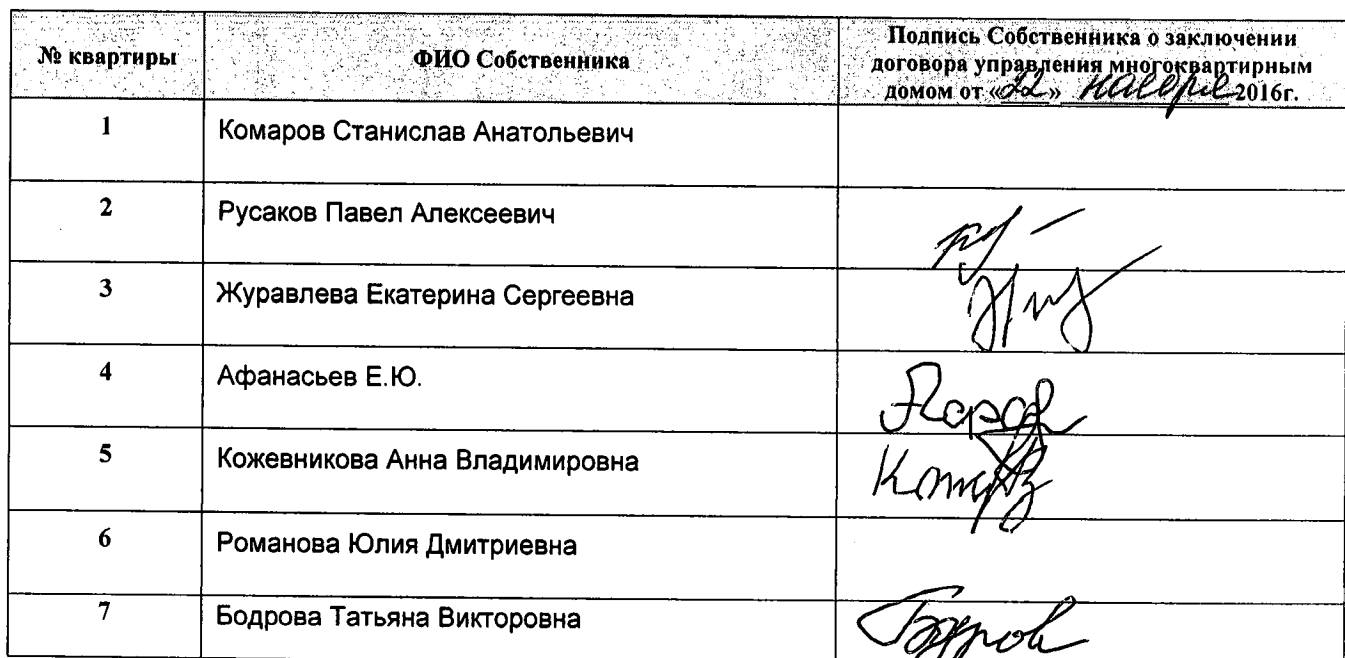 № квартиры
ФИО Собственника
Подпись Собственника о заключении
договора управления многоквартирным
домом от «22» ноября 2016г.
1
Комаров Станислав Анатольевич
2
Русаков Павел Алексеевич
3
Журавлева Екатерина Сергеевна
4
Афанасьев Е.Ю.
5
Кожевникова Анна Владимировна
6
Романова Юлия Дмитриевна
7
Бодрова Татьяна Викторовна